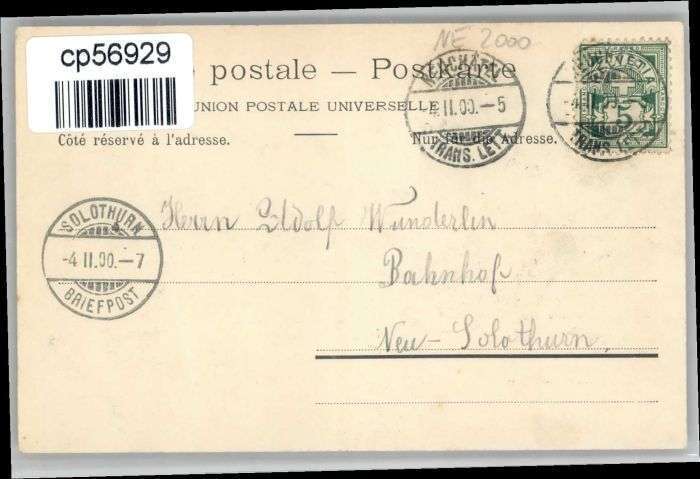 cp56929
NE 2000
postale — Postkarte
UNION POSTALE UNIVERSELLE
Côté réservé à l'adresse.
Nur für die Adresse.
-4.II.00.-5
TRANS. LETT.
TRANS. LETT.
5
SOLOTHURN
-4.II.00.-7
BRIEFPOST
Herrn Adolf Wunderlin
Bahnhof
Neu-Solothurn.